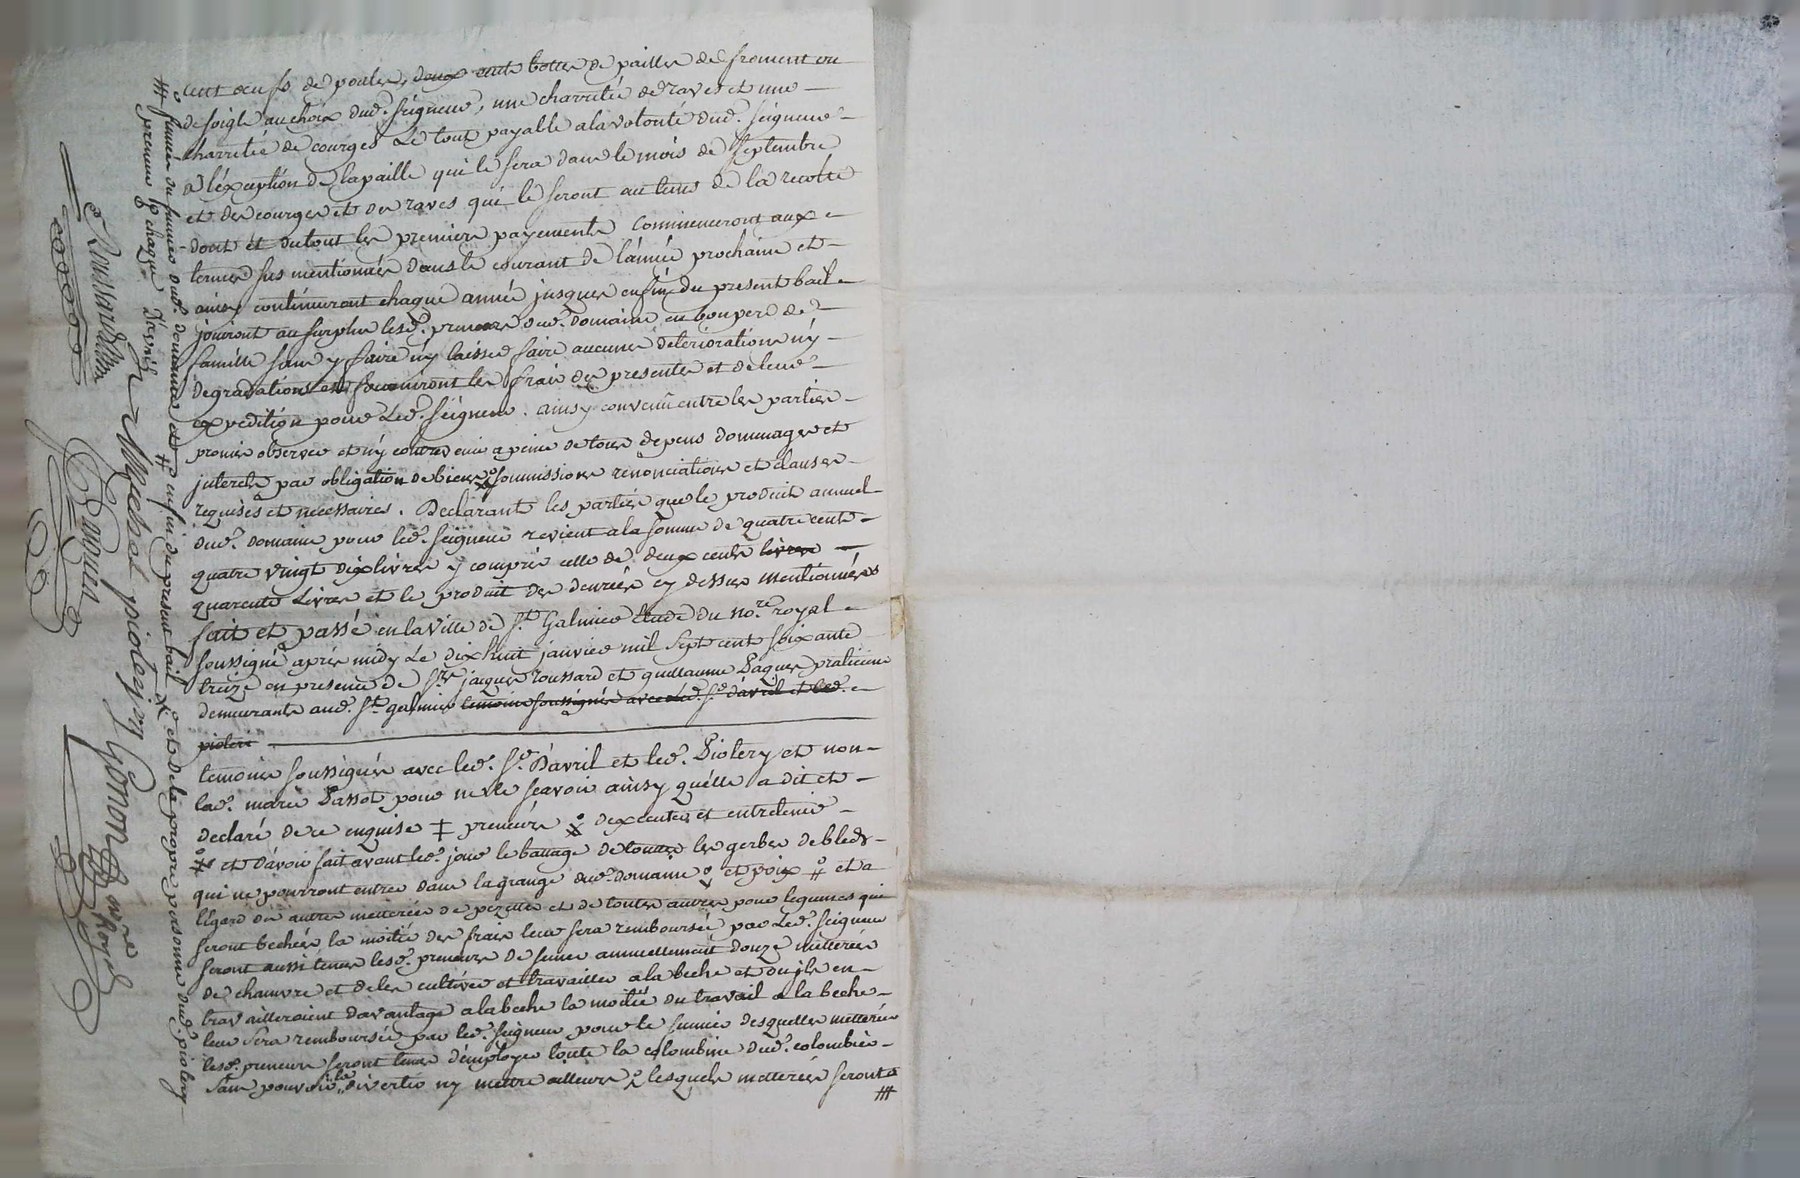 cent oeufs de poules, deux cents bottes de paille de froment ou
de soigle au choix dud. seigneur, une charrettée de raves et une
charrettée de courges Le tout payable a la volonté dud. seigneur
a l'éxception de la paille qui le sera dans le mois de septembre
et des courges et des raves qui le seront au tems de la recolte
dont et du tout les premiers payements commenceront aux
termes sus mentionnés dans le courant de l'année prochaine et
ainsy continueront chaque année jusques enfin du present bail
jouiront au surplus lesd. preneurs dud. domaine en bon pere de
famille sans y faire n'y laisser faire aucunes deteriorations n'y
degradations et fourniront les frais des presentes et de leur
expedition pour Led. seigneur. ainsy convenu entre les parties
promis observer et n'y contrevenir a peine de tous depens dommages et
interets par obligation de biens soumissions renonciations et clauses
requises et necessaires. Declarants les parties que le produit annuel
dud. domaine pour led. seigneur revient a la somme de quatre cents
quatre vingt dix livres y compris celle de deux cents livres
quarente Livres et le produit des denrées cy dessus mentionnées
fait et passé en la ville de St. Galmier étude du nore. royal
soussigné aprés midy Le dix huit janvier mil sept cent soixante
treize en presence de Srs jaques roussard et guillaume Paques praticiens
demeurants aud. St. galmier temoins soussignés avec led. sr. d'avril et led.
piolery
temoins soussignés avec led. sr. D'avril et led. Piolery et non
lad. marie Passot pour ne le scavoir ainsy qu'elle a dit et
declaré de ce enquise ‡ preneurs x d'executer et entretenir
# et d'avoir fait avant led. jour le battage de toutes les gerbes de bleds
qui ne pourront entrer dans la grange dud. domaine et poix # et a
l'égard des autres metterées de pezettes et de toutes autres pour legumes qui
seront bechées la moitié des frais leur sera remboursée par Led. seigneur
seront aussi tenus lesd. preneurs de semer annuellement douze metterées
de chanvre et de les cultiver et travailler a la beche et ou ils en
travailleroient davantage a la beche la moitié du travail a la beche
leur sera remboursée par led. seigneur pour le fumier desquelles metterées
lesd. preneurs seront tenus d'employer toute la colombine dud. colombier
sans pouvoir la divertir ny mettre ailleurs lesquels metterées seront
# fumées du fumier dud. domaine et enfin du present bail et de la propre personne dud. piolery
preneur chaque D'avril
Roussard
Paques
Michel piolery
Gonon
nore Royal